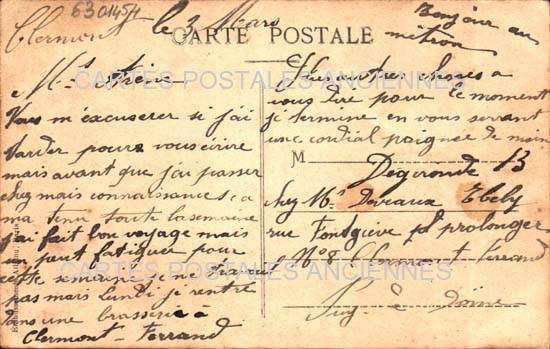 6301454
Clermont le 3 Mars
Bonjour au
CARTE POSTALE
CARTES POSTALES ANCIENNES
Vous m'éxcuserer si j'ai
tarder pour vous écrire
mais avant que j'ai passer
chez mais connaissances, ca
ma tenu toute la semaine
j'ai fait bon voyage mais
un peut fatiguer pour
cette semaine je ne travail
pas mais lundi je rentre
dans une brasserie à
Clermont-Ferrand
Plus autres choses a
vous dire pour le moment
je termine en vous serrant
une cordial poignée de main
M
Degironde B
chez Mr Devaux Ebely
rue Fontgiève pl prolonger
No 8 Clermont Ferrand
Puy-de-Dôme
CARTES POSTALES ANCIENNES